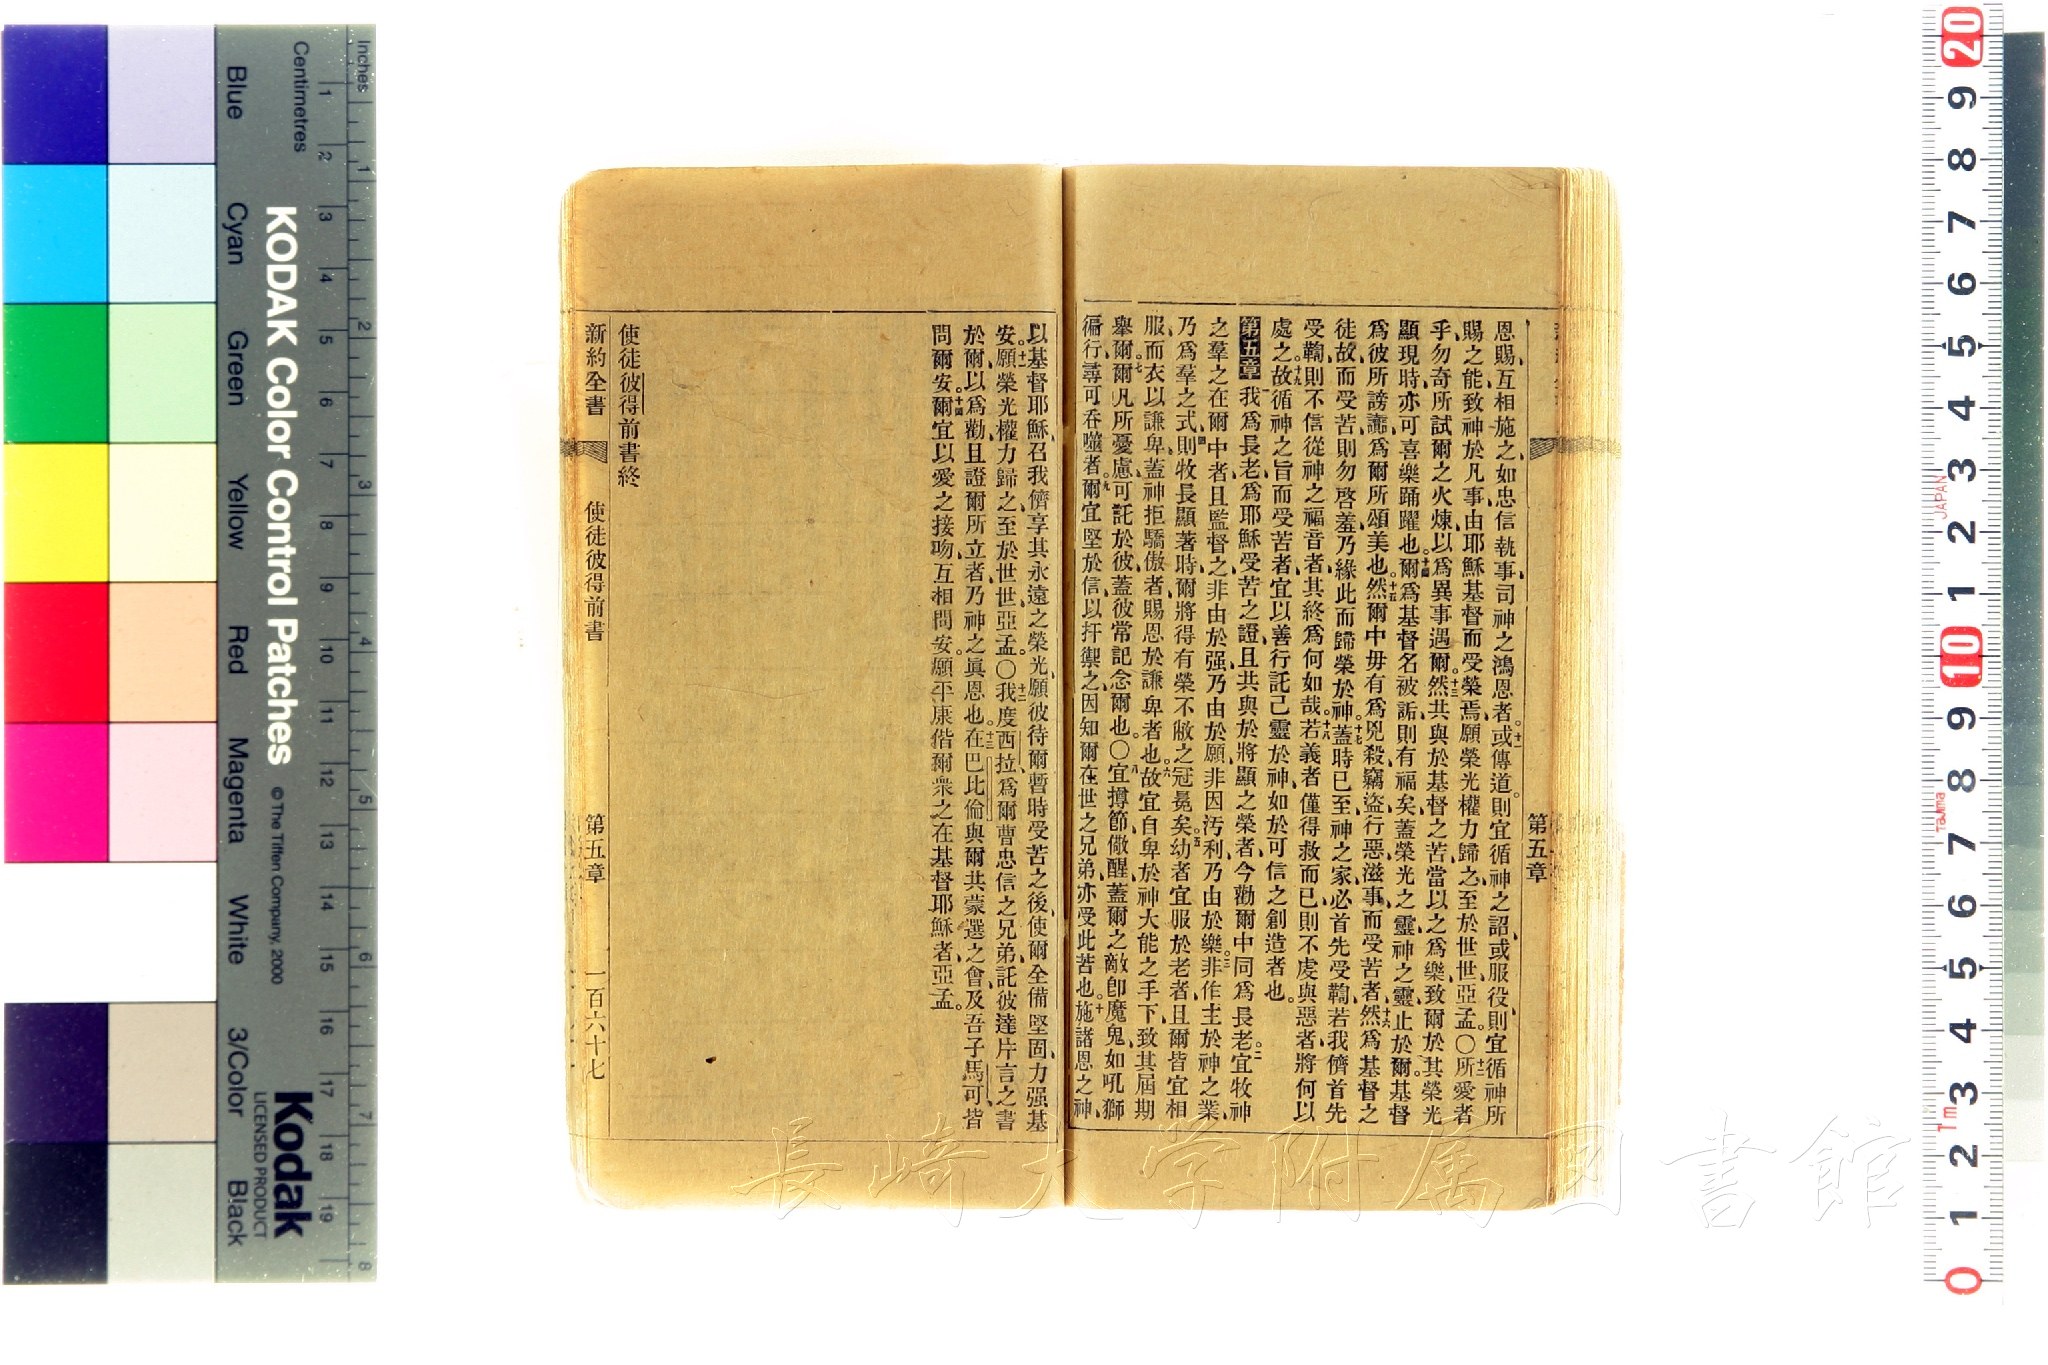 恩賜、互相施之、如忠信執事、司神之鴻恩者。十一或傳道、則宜循神之詔、或服役、則宜循神所
賜之能、致神於凡事由耶穌基督而受榮焉、願榮光權力歸之、至於世世、亞孟。〇十二所愛者
乎、勿奇所試爾之火煉、以爲異事遇爾。十三然共與於基督之苦、當以之爲樂、致爾於其榮光
顯現時、亦可喜樂踊躍也。十四爾爲基督名被詬、則有福矣、蓋榮光之靈、神之靈、止於爾、基督
爲彼所謗讟、爲爾所頌美也。十五然爾中毋有爲兇殺、竊盜、行惡、滋事、而受苦者。十六然爲基督之
徒故而受苦、則勿啓羞、乃緣此而歸榮於神。十七蓋時已至、神之家必首先受鞫、若我儕首先
受鞫、則不信從神之福音者、其終爲何如哉。十八若義者僅得救而已、則不虔與惡者、將何以
處之。十九故循神之旨而受苦者、宜以善行託己靈於神、如於可信之創造者也。
第五章 我爲長老、爲耶穌受苦之證、且共與於將顯之榮者、今勸爾中同爲長老、二宜牧神
之羣之在爾中者、且監督之、非由於强、乃由於願、非因汚利、乃由於樂、三非作主於神之業、
乃爲羣之式、四則牧長顯著時、爾將得有榮不敝之冠冕矣。五幼者宜服於老者、且爾皆宜相
服、而衣以謙卑、蓋神拒驕傲者、賜恩於謙卑者也。六故宜自卑於神大能之手下、致其屆期
舉爾、七爾凡所憂慮、可託於彼、蓋彼常記念爾也。〇八宜撙節儆醒、蓋爾之敵卽魔鬼、如吼獅
徧行、尋可吞噬者。九爾宜堅於信、以扞禦之、因知爾在世之兄弟、亦受此苦也。十施諸恩之神、
第五章
以基督耶穌召我儕享其永遠之榮光、願彼待爾暫時受苦之後、使爾全備堅固、力强基
安。十一願榮光權力歸之、至於世世、亞孟。〇十二我度西拉爲爾曹忠信之兄弟、託彼達片言之書
於爾、以爲勸、且證爾所立者、乃神之眞恩也。十三在巴比倫與爾共蒙選之會、及吾子馬可皆
問爾安。十四爾宜以愛之接吻、互相問安、願平康偕爾衆之在基督耶穌者、亞孟。
使徒彼得前書終
新約全書 使徒彼得前書 第五章 一百六十七
長崎大学附属図書館
KODAK Color Control Patches
© The Tiffen Company, 2000
Kodak
LICENSED PRODUCT
Inches
Centimetres
Blue
Cyan
Green
Yellow
Red
Magenta
White
3/Color
Black
1 2 3 4 5 6 7 8 9 10 11 12 13 14 15 16 17 18 19
1 2 3 4 5 6 7 8
20 9 8 7 6 5 4 3 2 1 10 9 8 7 6 5 4 3 2 1 0
JAPAN
Tajima
Tm